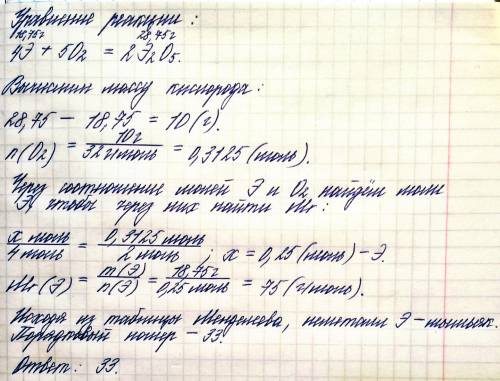 Уравнение реакции:
18,75г 28,75г
4Э + 5O2 = 2Э2O5.
Вычислим массу кислорода:
28,75 – 18,75 = 10 (г).
n(O2) = 10г / 32г/моль = 0,3125 (моль).
Через соотношение молей Э и O2 найдём моли
Э, чтобы через них найти Mr:
x моль / 4 моль = 0,3125 моль / 2 моль ; x = 0,25 (моль) – Э.
Mr (Э) = m(Э) / n(Э) = 18,75г / 0,25 моль = 75 (г/моль).
Исходя из таблицы Менделеева, неметалл Э – мышьяк.
Порядковый номер – 33.
Ответ: 33.